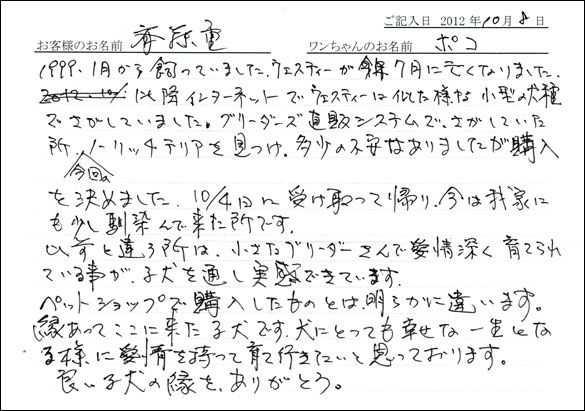 ご記入日 2012年10月8日
お客様のお名前 ワンちゃんのお名前 ポコ
1999.1月から飼っていました、ウェスティーが今年7月に亡くなりました。
以降インターネットでウェスティーに似た様な小型の犬種
でさがしていました。ブリーダーズ直販システムで、さがしていた
所、ノーリッチテリアを見つけ、多少の不安はありましたが購入
今回の
を決めました。10/4日に受け取って帰り、今は我家に
も少し馴染んで来た所です。
以前と違う所は、小さなブリーダーさんで愛情深く育てられ
ている事が、子犬を通し実感できています。
ペットショップで購入したものとは、明らかに違います。
縁あってここに来た子犬です、犬にとっても幸せな一生とな
る様に愛情を持って育て行きたいと思っております。
良い子犬の縁を、ありがとう。